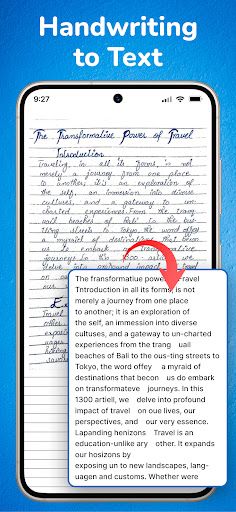 Handwriting
to Text
9:27
The Transformative Power of Travel
Introduction
Traveling in all its forms, is not
merely a journey from one place
to another; it is an exploration
of the self, an immession into diverse
cultures, and a gateway to un-
charted experiences. From the tranq
uail beaches of Bali to the bus
tling streets to Tokyo, the word offey
a myraid of destinations that becon
us to embark on transformative
journeys. In this 1300 article, we
delve into profound impact
The transformatiue powe Travel
Tntroduction in all its forms, is not
merely a journey from one place
to another; it is an exploration of
the self, an immession into diverse
cultures, and a gateway to un-charted
experiences from the trang uail
beaches of Bali to the ous-ting streets to
Tokyo, the word offey a myraid of
destinations that becon us do embark
on transformateve journeys. In this
1300 artiell, we delve into profound
impact of travel on oue lives, our
perspectives, and our very essence.
Lapanding henizons Travel is an
education-unlike ary other. It expands
our hosizons by
exposing un to new landscapes, lang-
uagen and customs. Whether were